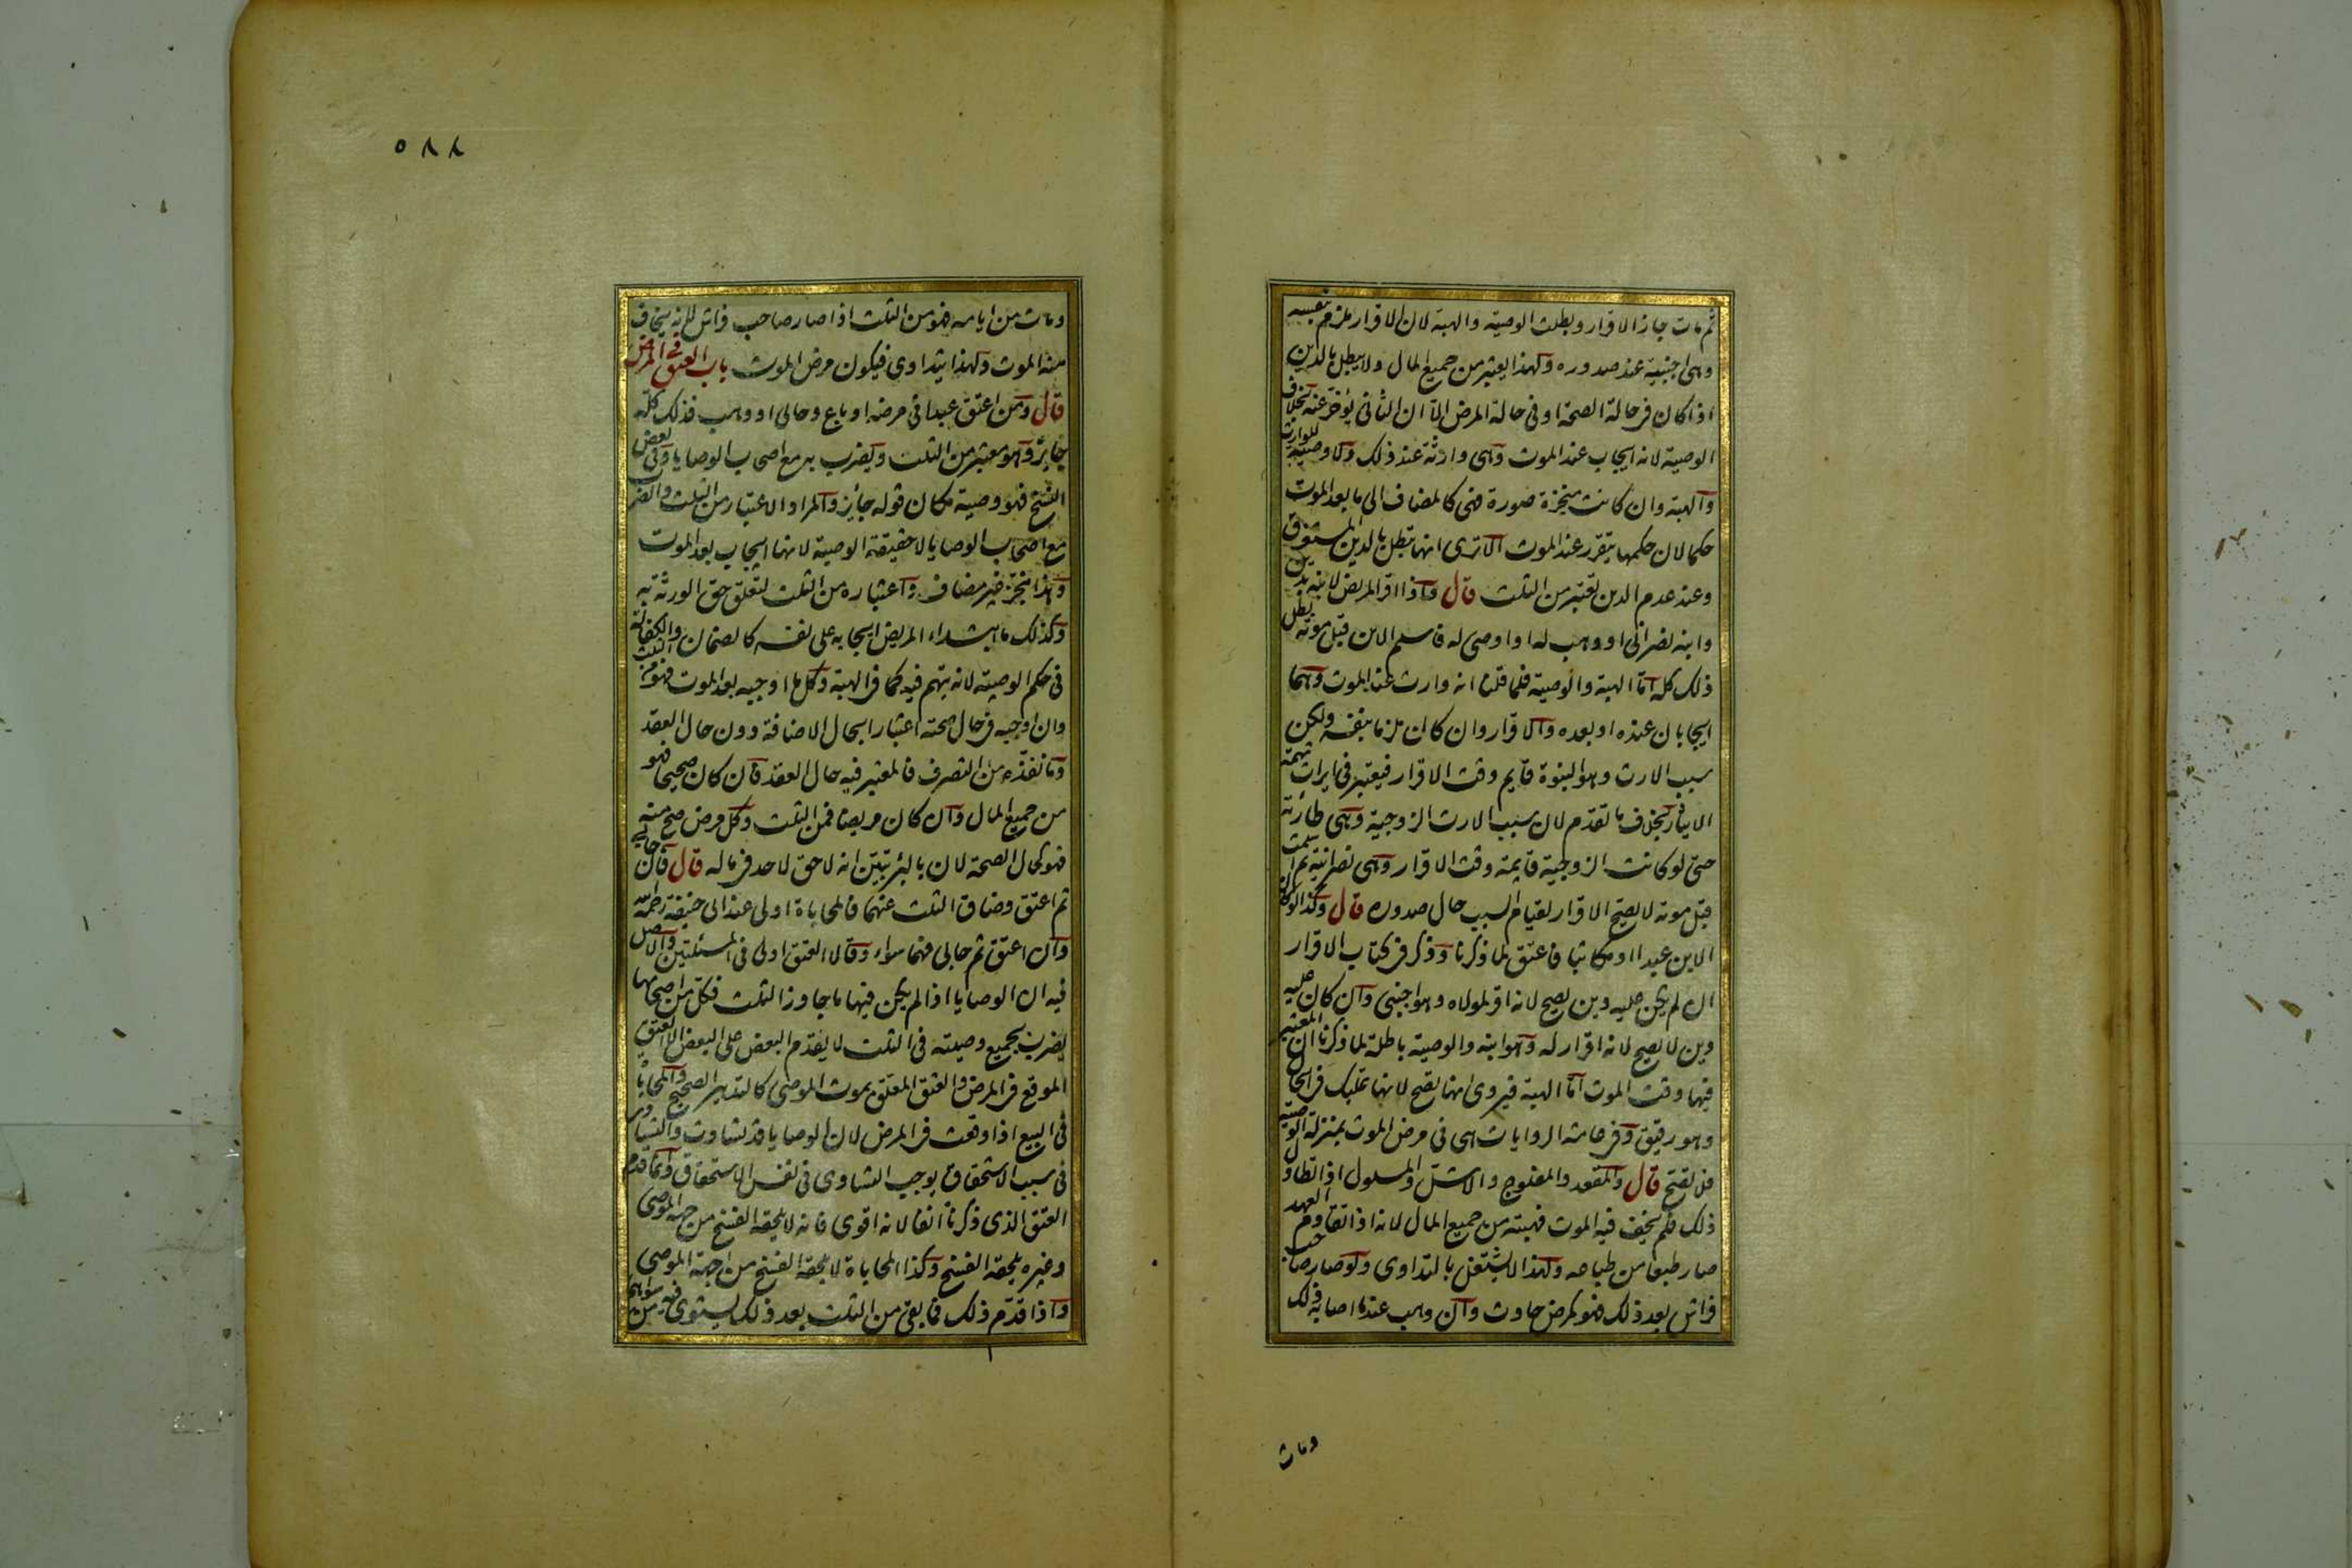 ثم مات جاز الاقرار وبطلت الوصية والهبة لان الاقرار ملزم بنفسه
وهى اجنبية عند صدوره ولهذا يعتبر من جميع المال ولا يبطل بالدين
اذا كان فى حالة الصحة او فى حالة المرض الا ان الثانى يؤخر عنه بخلاف
الوصية لانه ايجاب عند الموت وهى وارثة عند ذلك ولا وصية للوارث
والهبة وان كانت منجزة صورة فهى كالمضاف الى ما بعد الموت
حكما لان حكمها يتقرر عند الموت الا ترى انها تبطل بالدين المستغرق
وعند عدم الدين تعتبر من الثلث قال واذا اقر المريض لابنه بدين
وابنه نصرانى او وهب له او اوصى له فاسلم الابن قبل موته بطل
ذلك كله اما الهبة والوصية فلما قلنا انه وارث عند الموت وهما
ايجابان عنده او بعده والاقرار وان كان ملزما بنفسه ولكن
سبب الارث وهو البنوة قايم وقت الاقرار فيعتبر فى ايراث تهمة
الايثار بخلاف ما تقدم لان سبب الارث الزوجية وهى طارئة
حتى لو كانت الزوجية قايمة وقت الاقرار وهى نصرانية ثم اسلمت
قبل موته لا يصح الاقرار لقيام السبب حال صدوره قال وكذا لو كان
الابن عبدا او مكاتبا فاعتق لما ذكرنا وذكر فى كتاب الاقرار
ان لم يكن عليه دين يصح لانه اقر لمولاه وهو اجنبى وان كان عليه
دين لا يصح لانه اقرار له وهو ابنه والوصية باطلة لما ذكرنا ان المعتبر
فيها وقت الموت اما الهبة فيروى انها تصح لانها تمليك فى الحال
وهو رقيق وفى عامة الروايات هى فى مرض الموت بمنزلة الوصية
فلا تصح قال والمقعد والمفلوج والاشل والمسلول اذا تطاول
ذلك فلم يخف فيه الموت فهبته من جميع المال لانه اذا تقادم العهد
صار طبعا من طباعه ولهذا لا يشتغل بالتداوى ولو صار صاحب
فراش بعد ذلك فهو كمرض حادث وان وهب عندما اصابه ذلك
ومات
٥٨٨
ومات من ايامه فهو من الثلث اذا صار صاحب فراش لانه يخاف
منه الموت ولهذا يتداوى فيكون مرض الموت باب العتق فى المرض
قال ومن اعتق عبدا فى مرضه او باع وحابى او وهب فذلك كله
جائز وهو معتبر من الثلث ويضرب به مع اصحاب الوصايا وفى بعض
النسخ فهو وصية مكان قوله جايز والمراد الاعتبار من الثلث والضرب
مع اصحاب الوصايا لا حقيقة الوصية لانها ايجاب بعد الموت
وهذا منجز غير مضاف واعتباره من الثلث لتعلق حق الورثة به
وكذلك ما ابتداء المريض ايجابه على نفسه كالضمان والكفالة
فى حكم الوصية لانه يتهم فيه كما فى الهبة وكل ما اوجبه بعد الموت فهو من الثلث
وان اوجبه فى حال صحته اعتبارا بحال الاضافة دون حال العقد
وما نفذه من التصرف فالمعتبر فيه حال العقد فان كان صحيحا فهو
من جميع المال وان كان مريضا فمن الثلث وكل مرض صح منه
فهو كحال الصحة لان بالبرء تبين انه لا حق لاحد فى ماله قال فان حابى
ثم اعتق وضاق الثلث عنهما فالمحاباة اولى عند ابى حنيفة رحمه الله
وان اعتق ثم حابى فهما سواء وقالا العتق اولى فى المسئلتين والاصل
فيه ان الوصايا اذا لم يكن فيها ما جاوز الثلث فكل من اصحابها
يضرب بجميع وصيته فى الثلث لا يقدم البعض على البعض الا العتق
الموقع فى المرض والعتق المعلق بموت الموصى كالتدبير الصحيح والمحاباة
فى البيع اذا وقعت فى المرض لان الوصايا قد تساوت والتساوى
فى سبب الاستحقاق يوجب التساوى فى نفس الاستحقاق وانما قدم
العتق الذى ذكرناه انفا لانه اقوى فانه لا يلحقه الفسخ من جهة الموصى
وغيره يلحقه الفسخ وكذا المحاباة لا يلحقه الفسخ من جهة الموصى
واذا قدم ذلك فما بقى من الثلث بعد ذلك يستوى فيه من سواهم